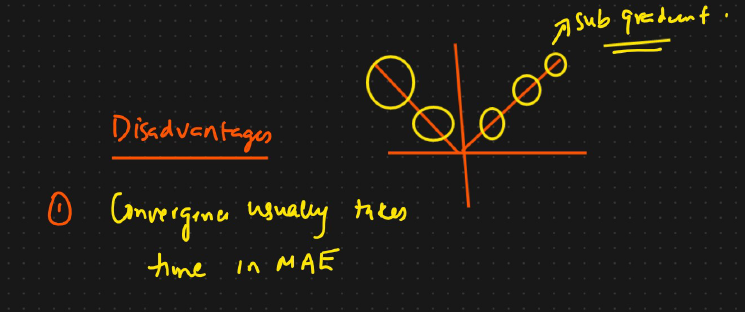 sub gradient.
Disadvantages
① Convergence usually takes
time in MAE